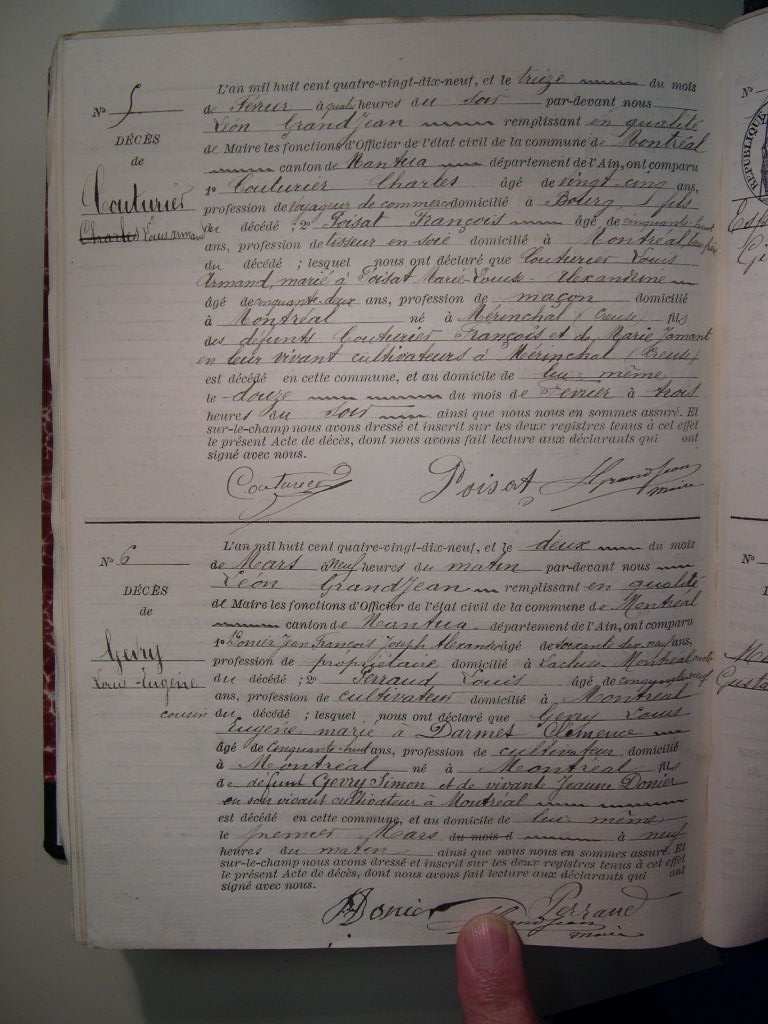 N° 5
DÉCÈS
de
Couturier
Charles Louis Armand
L'an mil huit cent quatre-vingt-dix-neuf, et le treize du mois
de Février à quatre heures du soir par-devant nous
Léon Grandjean remplissant en qualité
de Maire les fonctions d'Officier de l'état civil de la commune de Montréal
canton de Nantua département de l'Ain, ont comparu
1° Couturier Charles âgé de vingt-cinq ans,
profession de voyageur de commerce domicilié à Bourg, fils
du décédé ; 2° Poisat François âgé de cinquante-huit
ans, profession de tisseur en soie domicilié à Montréal beau-frère
du décédé ; lesquel nous ont déclaré que Couturier Louis
Armand, marié à Poisat Marie-Louise-Alexandrine
âgé de cinquante-deux ans, profession de maçon domicilié
à Montréal né à Mérinchal (Creuse) fils
des défunts Couturier François et de Marie Jamant
en leur vivant cultivateurs à Mérinchal (Creuse)
est décédé en cette commune, et au domicile de lui même
le douze du mois de Février à trois
heures du soir ainsi que nous nous en sommes assuré. Et
sur-le-champ nous avons dressé et inscrit sur les deux registres tenus à cet effet
le présent Acte de décès, dont nous avons fait lecture aux déclarants qui ont
signé avec nous.
Couturier Poisat L Grandjean
maire
N° 6
DÉCÈS
de
Gevry
Louis-Eugène
L'an mil huit cent quatre-vingt-dix-neuf, et le deux du mois
de Mars à neuf heures du matin par-devant nous
Léon Grandjean remplissant en qualité
de Maire les fonctions d'Officier de l'état civil de la commune de Montréal
canton de Nantua département de l'Ain, ont comparu
1° Donier Jean François Joseph Alexandre âgé de soixante dix neuf ans,
profession de propriétaire domicilié à Lacluse Montréal oncle
du décédé ; 2° Perraud Louis âgé de cinquante neuf
ans, profession de cultivateur domicilié à Montréal
cousin du décédé ; lesquel nous ont déclaré que Gevry Louis
Eugène marié à Darmès Clémence
âgé de cinquante-huit ans, profession de cultivateur domicilié
à Montréal né à Montréal fils
de défunt Gevry Simon et de vivante Jeanne Donier
en son vivant cultivateur à Montréal
est décédé en cette commune, et au domicile de lui même
le premier Mars du mois d à neuf
heures du matin ainsi que nous nous en sommes assuré. Et
sur-le-champ nous avons dressé et inscrit sur les deux registres tenus à cet effet
le présent Acte de décès, dont nous avons fait lecture aux déclarants qui ont
signé avec nous.
Donier Perraud
maire
N°
RÉPUBLIQUE
N°